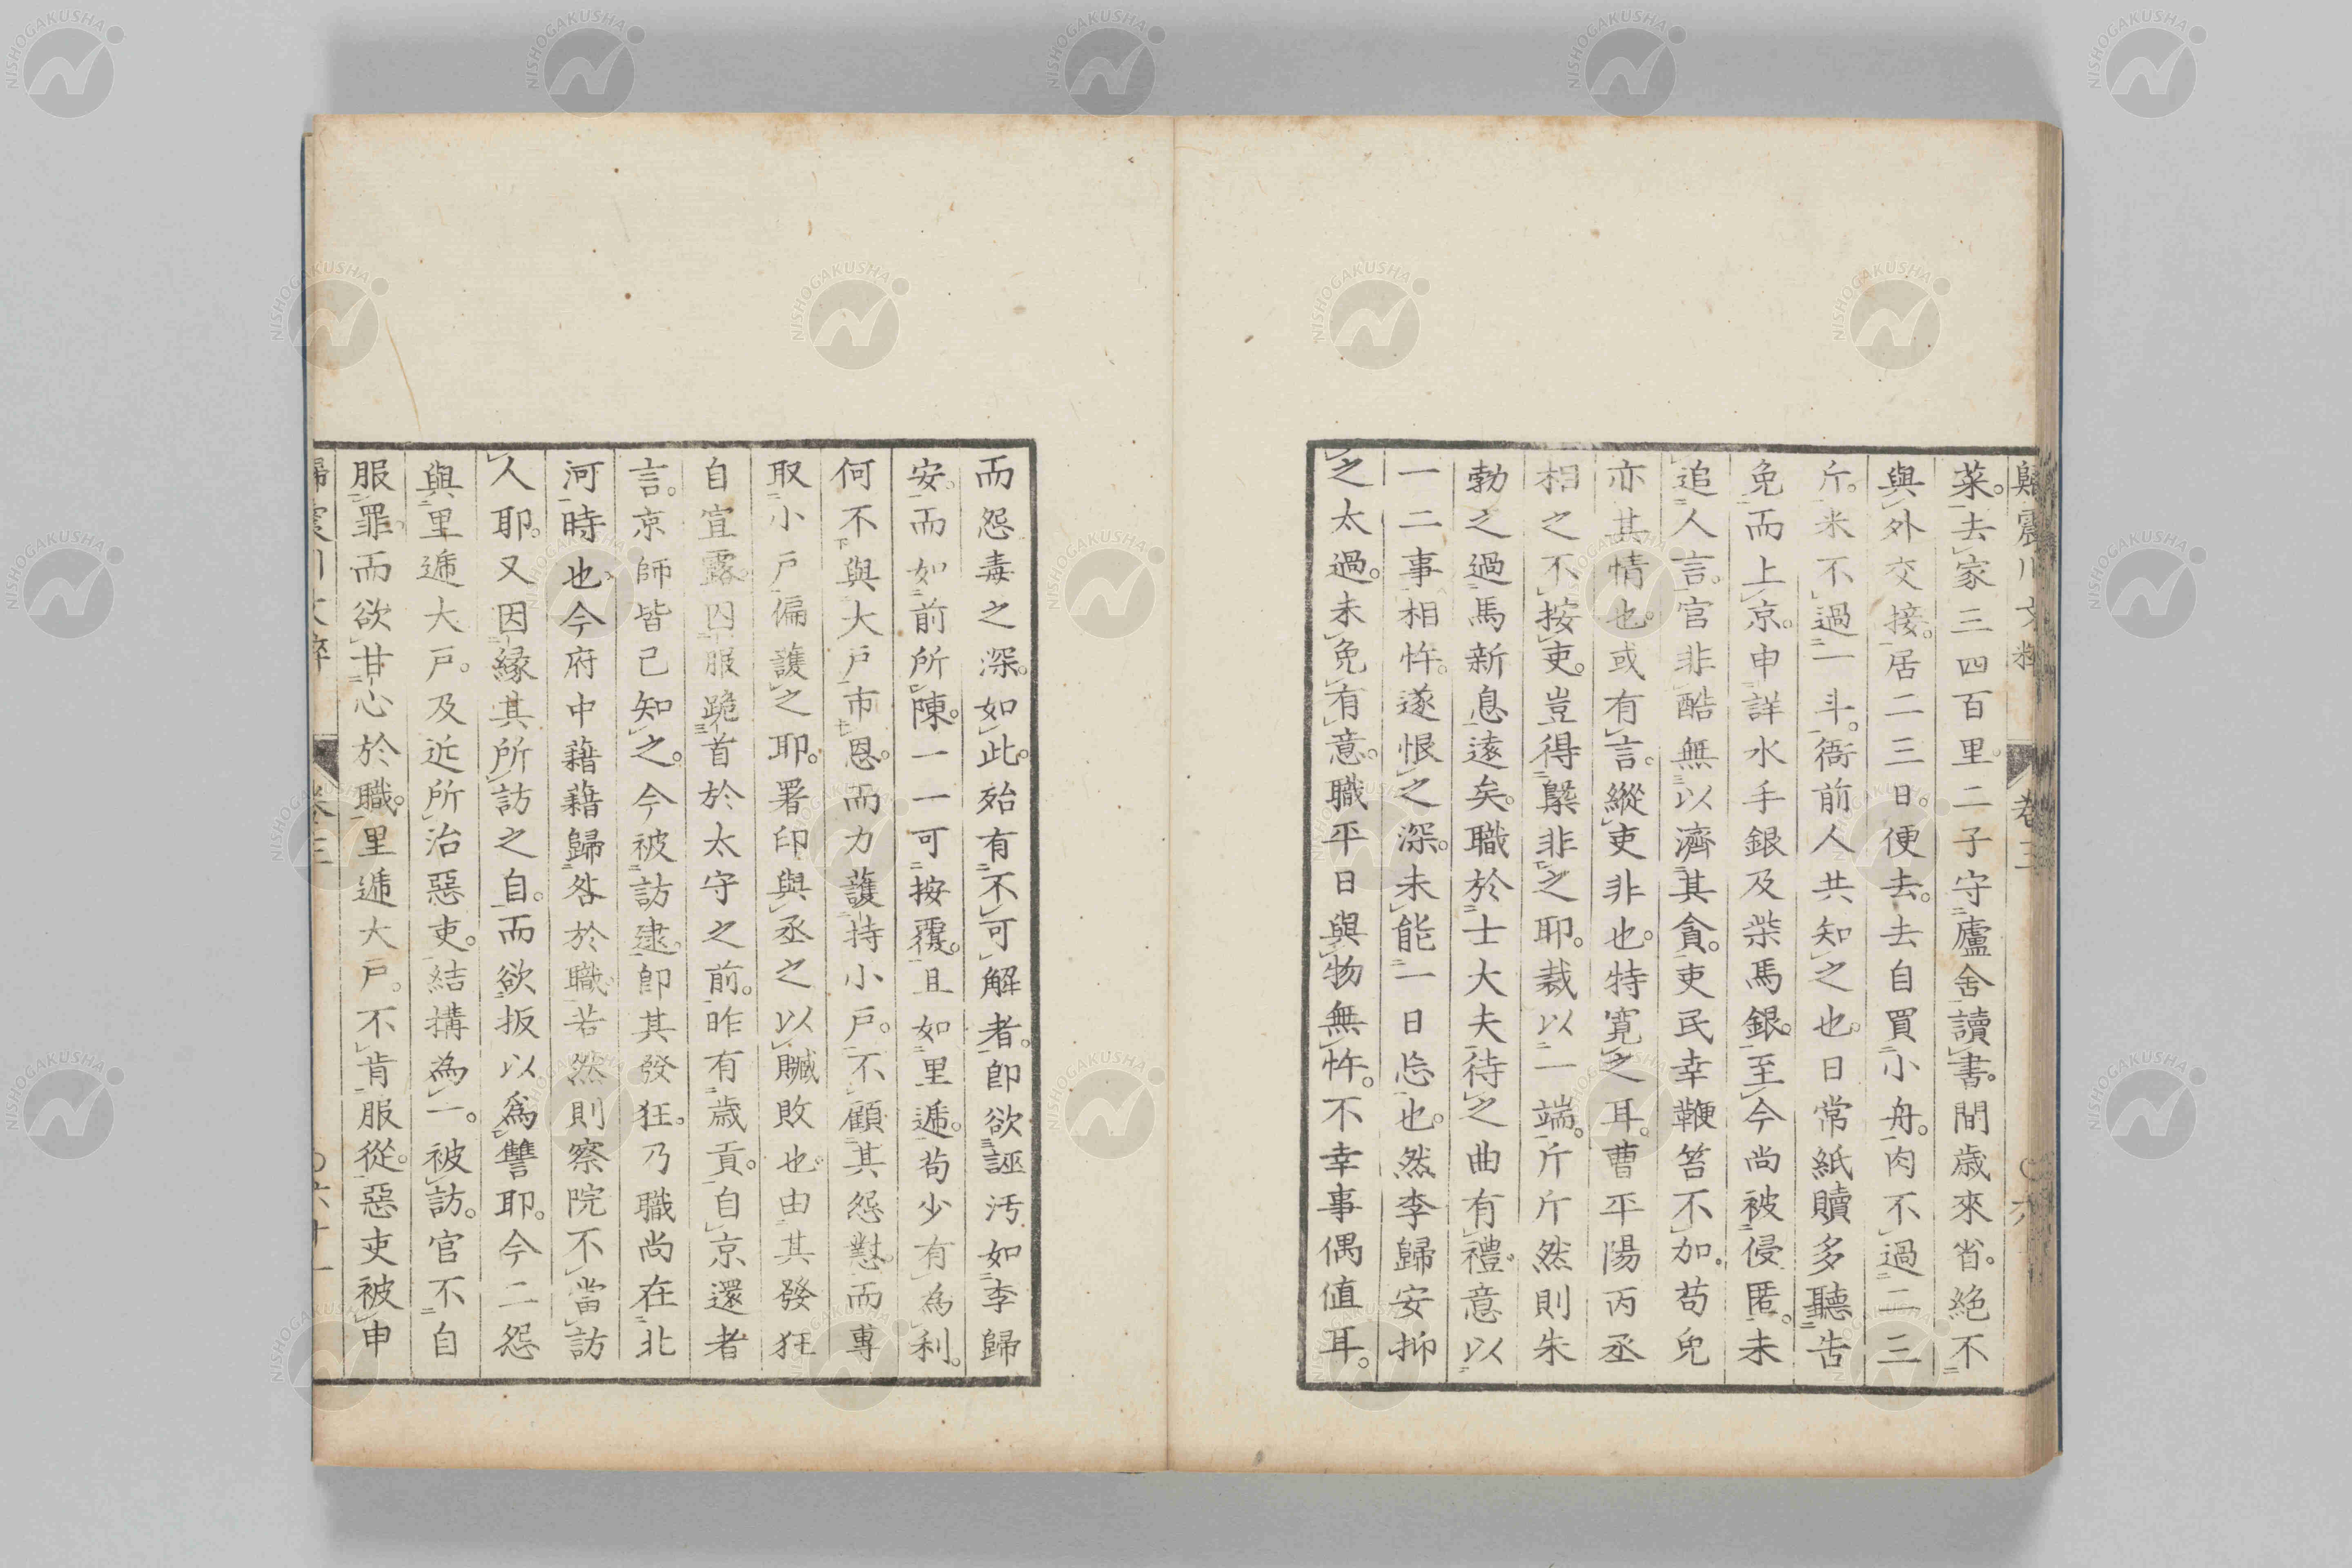 歸震川文粹 卷三 六
菜。去家三四百里。二子守廬舍讀書。間歳來省。絶不
與外交接。居二三日。便去。去自買小舟。肉不過二三
斤。米不過一斗。衙前人共知之也。日常紙贖多聽告
免。而上京。申詳水手銀及柴馬銀。至今尚被侵匿。未
追人言。官非酷無以濟其貪。吏民幸鞭笞不加。苟免
亦其情也。或有言。縱吏非也。特寛之耳。曹平陽丙丞
相之不按吏。豈得槩非之耶。裁以一端。斤斤然則朱
勃之過馬新息遠矣。職於士大夫待之曲有禮意。以
一二事相忤。遂恨之深。未能一日忘也。然李歸安抑
之太過。未免有意。職平日與物無忤。不幸事偶値耳。
而怨毒之深。如此。殆有不可解者。卽欲誣汚如李歸
安。而如前所陳。一一可按覆。且如里遞。苟少有為利。
何不與大戸市恩。而力護持小戸。不顧其怨懟。而專
取小戸偏護之耶。署印與丞之以贓敗也。由其發狂
自宣露。囚服跪首於太守之前。昨有歳貢。自京還者
言。京師皆已知之。今被訪逮。卽其發狂。乃職尚在北
河時也。今府中藉藉歸咎於職。若然則察院不當訪
人耶。又因縁其所訪之自。而欲扳以爲讐耶。今二怨
與里遞大戸。及近所治惡吏。結搆為一。被訪。官不自
服罪。而欲甘心於職。里遞大戸。不肯服從。惡吏被申
歸震川文粹 卷三 六十一